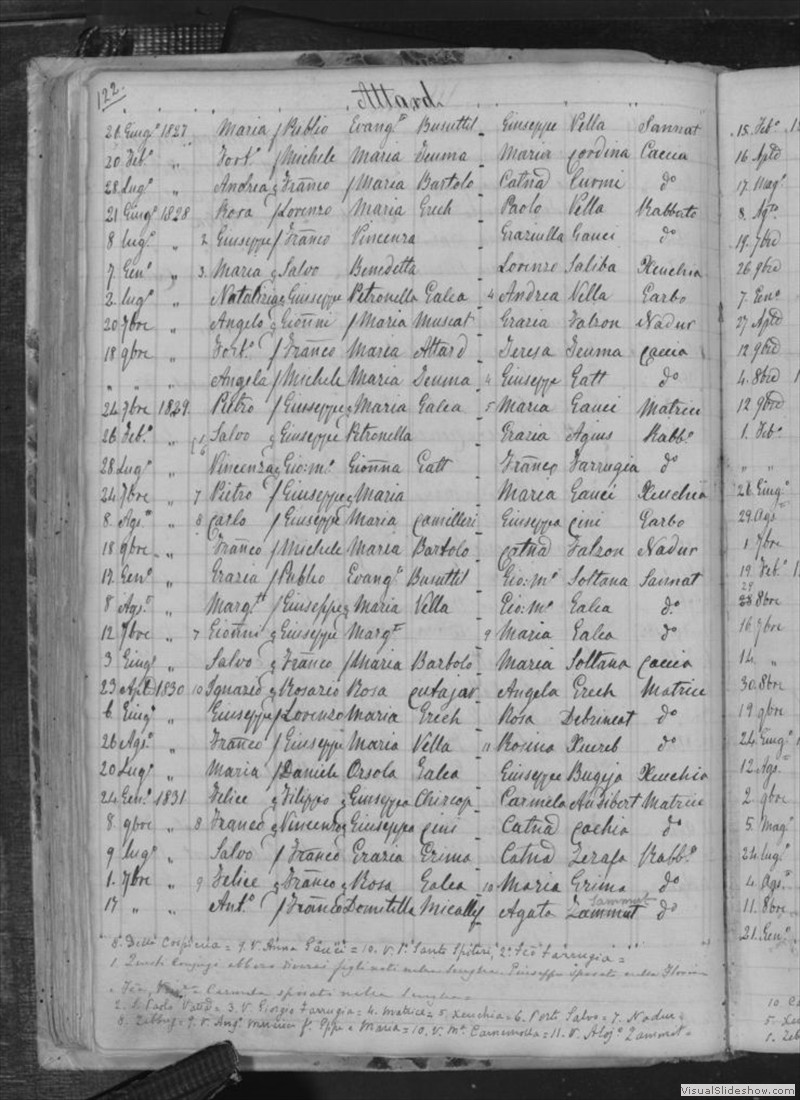 122.
Attard
26 Giug.° 1827 Maria f Publio Evang.ta Busuttil Giuseppe Vella Sannat
20 Feb.° " Fort.° f Michele Maria Teuma Maria Cordina Caccia
28 Lug.° " Andrea Franco f Maria Bartolo Catna Curmi d.°
21 Giug.° 1828 Rosa f Lorenzo Maria Grech Paolo Vella Rabbato
8 Lug.° " 2. Giuseppe f Franco Vincenza Graziulla Gauci d.°
7 Gen.° " 3. Maria Salvo Benedetta Lorenzo Saliba Xeuchia
2 Lug.° " Giuseppe Petronella Galea 4 Andrea Vella Garbo
20 7bre " Angelo Gionni f Maria Muscat Grazia Falzon Nadur
18 9bre " Fort.° f Franco Maria Attard Teresa Teuma Caccia
" " " Angela f Michele Maria Teuma 4 Giuseppe Gatt d.°
24 7bre 1829 Pietro f Giuseppe Maria Galea 5 Maria Gauci Matrice
26 Feb.° " Salvo Giuseppe Petronella Grazia Agius Rabb.°
28 Lug.° " Vincenza Gio:m.a Gionna Gatt Franco Farrugia d.°
24 7bre " 7 Pietro f Giuseppe Maria Maria Gauci Xeuchia
8 Ags.° " 8 Carlo f Giuseppe Maria Camilleri Giuseppa Cini Garbo
18 9bre " Franco f Michele Maria Bartolo Catna Falzon Nadur
19 Gen.° " Grazia f Publio Evang.ta Busuttil Gio:m.a Soltana Sannat
8 Ags.° " Marg.ta f Giuseppe Maria Vella Gio:m.a Galea d.°
12 7bre " 7 Gionni Giuseppe Marg.ta 9 Maria Galea d.°
3 Giug.° " Salvo Franco f Maria Bartolo Maria Soltana Caccia
23 Aple 1830 10 Ignazio Rosario Rosa Cutajar Angela Grech Matrice
6 Giug.° " Giuseppe f Lorenzo Maria Grech Rosa Debrincat d.°
26 Ags.° " Franco f Giuseppe Maria Vella 11 Rosina Xuereb d.°
20 Lug.° " Maria f Daniele Orsola Galea Giuseppe Bugeja Xeuchia
24 Gen.° 1831 Felice Filippo Giuseppa Chircop Carmela Audibert Matrice
8 9bre " 8 Franco Vincenzo Giuseppa Cini Catna Cachia d.°
9 Lug.° " Salvo f Franco Grazia Grima Catna Zerafa Rabb.°
1. 7bre " 9 Felice Franco Rosa Galea 10 Maria Grima d.°
Sammut
17 " " Ant.° f Franco Domitilla Micallef Agata Zammut d.°
8. Della Cospicua = 9. V. Anna Gauci = 10. V. 1.° Santo Spiteri, 2.° Farrugia =
2. S. Paolo = 3. V. Giorgio Farrugia = 4. Matrice = 5. Xeuchia = 6. Port. Salvo = 7. Nadur =
8. Zebbug = 9. V. = Maria = 10. V. = 11. V. Zammit =
15. Feb.°
16 Aple
17. Mag.°
8. Ag.to
19. 7bre
26 9bre
7 Gen.°
27 Aple
12. 9bre
4. 8bre
12 9bre
1. Feb.°
" "
28. Giug.°
29. Ags.°
1 7bre
19 Feb.° 1
29
28 8bre
16 7bre
14 "
30. 8bre
19 9bre
24 Giug.°
12. Ags.°
2. 9bre
5. Mag.°
24. Lug.°
4. Ags.°
11. 8bre
21. Gen.°
VisualSlideshow.com